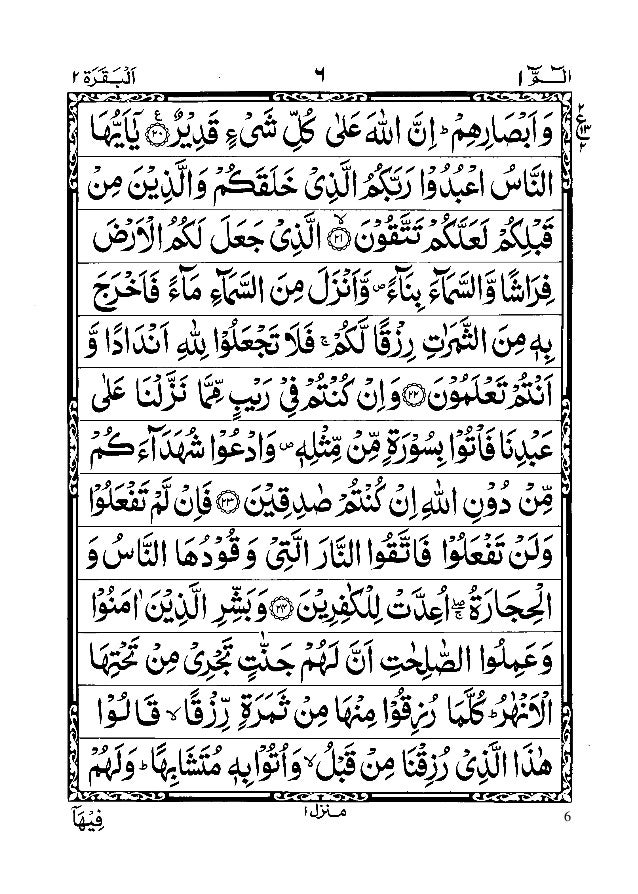 الٓمّٓ ١ ٦ اَلْبَقَرَة ٢
وَاَبْصَارِهِمْ ؕ اِنَّ اللّٰهَ عَلٰى كُلِّ شَىْءٍ قَدِيْرٌ ﴿٢٠﴾ يٰۤاَيُّهَا
النَّاسُ اعْبُدُوْا رَبَّكُمُ الَّذِىْ خَلَقَكُمْ وَالَّذِيْنَ مِنْ
قَبْلِكُمْ لَعَلَّكُمْ تَتَّقُوْنَ ۙ﴿٢١﴾ الَّذِىْ جَعَلَ لَكُمُ الْاَرْضَ
فِرَاشًا وَّالسَّمَآءَ بِنَآءً ۪ وَّاَنْزَلَ مِنَ السَّمَآءِ مَآءً فَاَخْرَجَ
بِهٖ مِنَ الثَّمَرٰتِ رِزْقًا لَّكُمْ ۚ فَلَا تَجْعَلُوْا لِلّٰهِ اَنْدَادًا وَّ
اَنْتُمْ تَعْلَمُوْنَ ﴿٢٢﴾ وَاِنْ كُنْتُمْ فِىْ رَيْبٍ مِّمَّا نَزَّلْنَا عَلٰى
عَبْدِنَا فَاْتُوْا بِسُوْرَةٍ مِّنْ مِّثْلِهٖ ۪ وَادْعُوْا شُهَدَآءَكُمْ
مِّنْ دُوْنِ اللّٰهِ اِنْ كُنْتُمْ صٰدِقِيْنَ ﴿٢٣﴾ فَاِنْ لَّمْ تَفْعَلُوْا
وَلَنْ تَفْعَلُوْا فَاتَّقُوا النَّارَ الَّتِىْ وَقُوْدُهَا النَّاسُ وَ
الْحِجَارَةُ ۖۚ اُعِدَّتْ لِلْكٰفِرِيْنَ ﴿٢٤﴾ وَبَشِّرِ الَّذِيْنَ اٰمَنُوْا
وَعَمِلُوا الصّٰلِحٰتِ اَنَّ لَهُمْ جَنّٰتٍ تَجْرِىْ مِنْ تَحْتِهَا
الْاَنْهٰرُ ؕ كُلَّمَا رُزِقُوْا مِنْهَا مِنْ ثَمَرَةٍ رِّزْقًا ۙ قَالُوْا
هٰذَا الَّذِىْ رُزِقْنَا مِنْ قَبْلُ ۙ وَاُتُوْا بِهٖ مُتَشَابِهًا ؕ وَلَهُمْ
فِيْهَآ منزل ١ 6